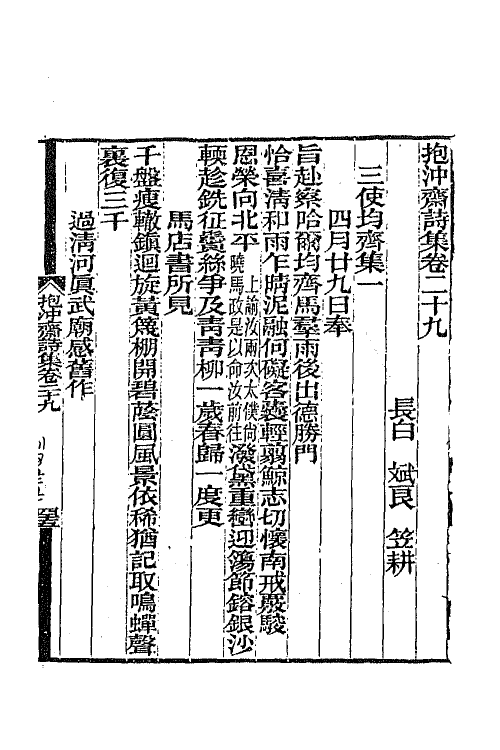 抱沖齋詩集卷二十九
長白 斌良 笠耕
三使均齊集一
四月廿九日奉
旨赴察哈爾均齊馬羣雨後出德勝門
恰喜淸和雨乍晴泥融何礙客裝輕翦鯨志切懷南戒發駿
恩榮向北平上諭汝兩次太僕尙曉馬政是以命汝前往潑黛重巒迎蕩節鎔銀沙
輭趁銑征鬢絲爭及靑靑柳一歲春歸一度更
馬店書所見
千盤瘦轍鎭迴旋黃篾棚開碧蔭圓風景依稀猶記取鳴蟬聲
裏復三千
過淸河眞武廟感舊作
抱沖齋詩集卷二十九